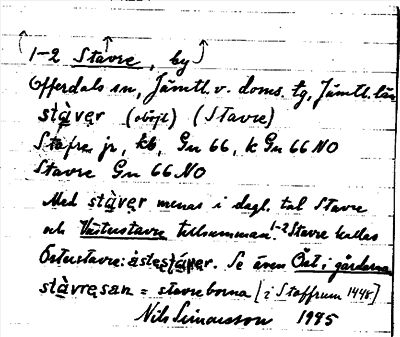 1-2 Stavre, by
Offerdals sn, Jämtl. v. doms. tg, Jämtl. län
stàver (oböjl) (Stavre)
jr, kb, Gn 66, k Gn 66 NO
Stavre Gn 66 NO
Med stàver menas i dagl. tal Stavre
och Västerstavre tillsamman. 1-2 Stavre kallas
Österstavre: àstestàver. Se även Öst i gårdarna
stàvresan = stavreborna [i Staffrum 1448]
Nils 1945